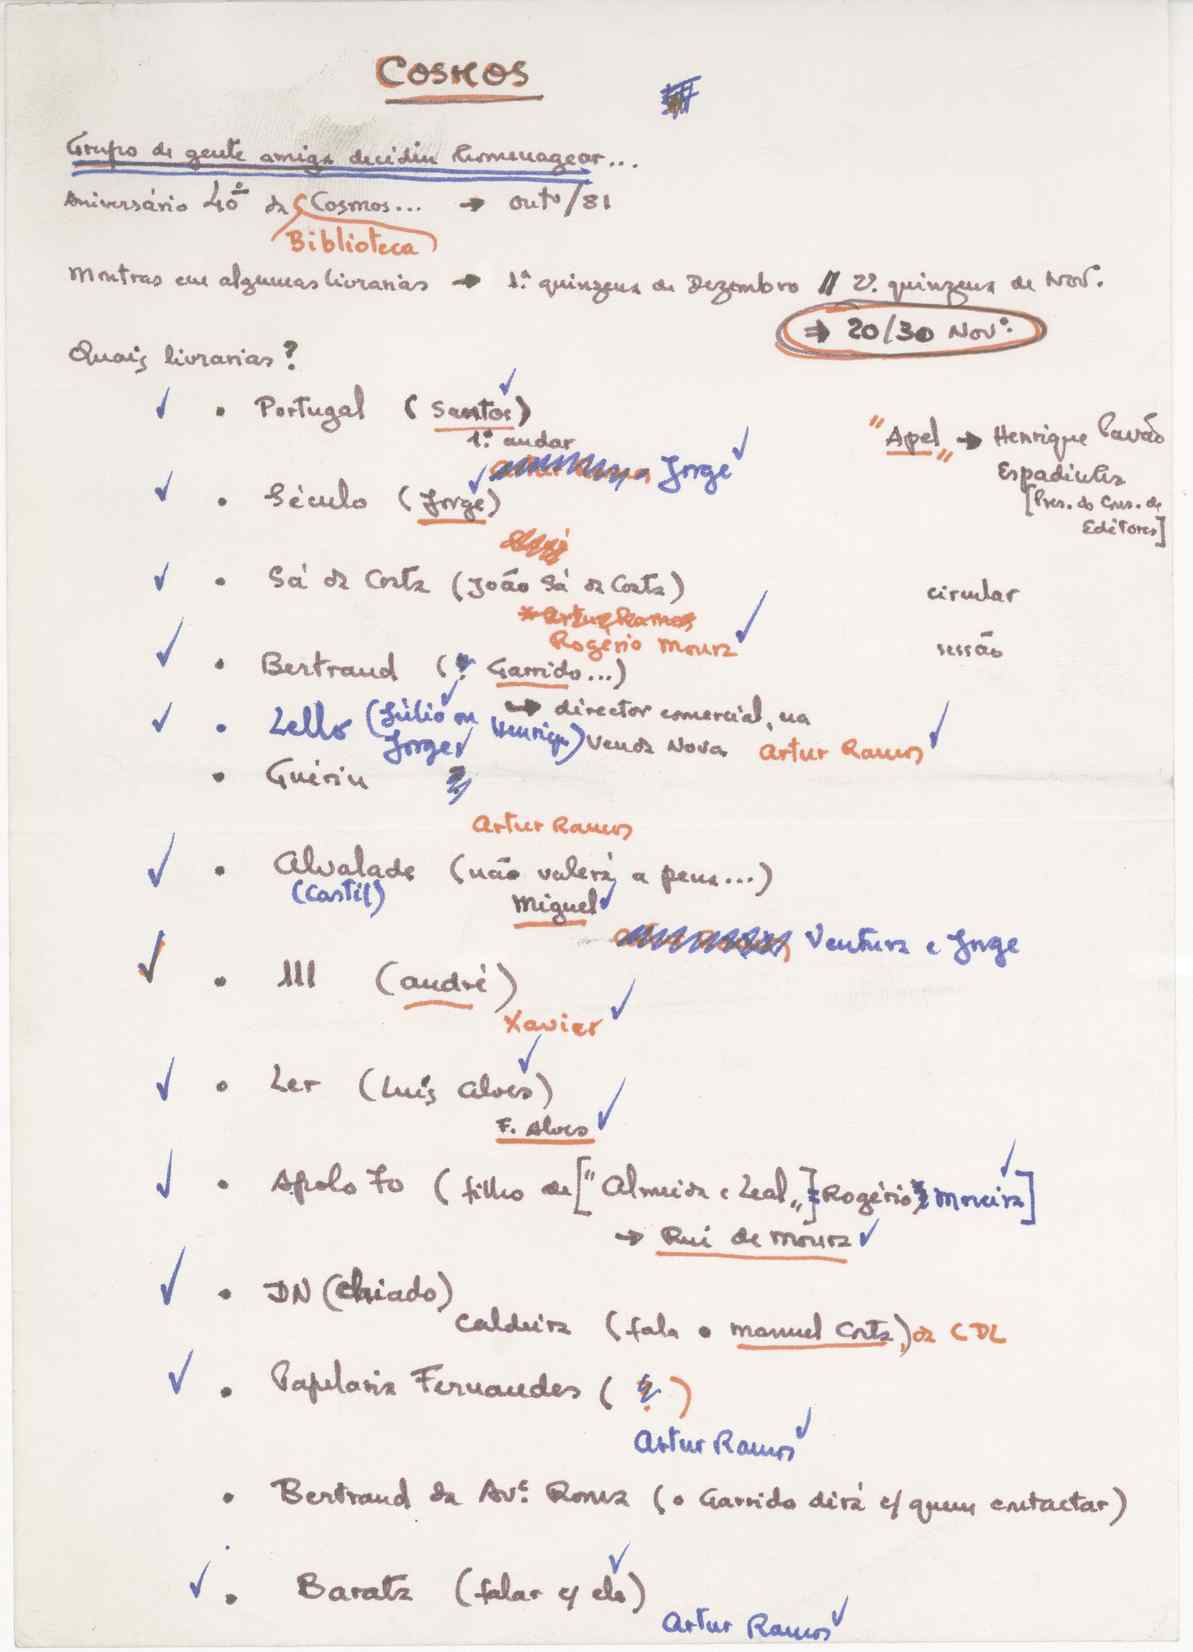 COSMOS
Grupo de gente amiga decidiu homenagear...
Aniversário 40º da Cosmos... → outº/81
Biblioteca
Montras em algumas livrarias → 1ª quinzena de Dezembro // 2ª quinzena de Nov.
⇒ 20/30 Novº.
Quais livrarias?
• Portugal (Santos)
1º andar
"Apel" → Henrique Pavão
Espadinha
[Pres. do Cons. de
Editores]
Jorge
• Século (Jorge)
• Sá da Costa (João Sá da Costa)
circular
Artur Ramos
Rogério Moura
sessão
• Bertrand (Garrido...)
→ director comercial, na
Venda Nova
• Lello (Júlio ou Henrique)
Jorge
Artur Ramos
• Guérin
Artur Ramos
• Alvalade (não valerá a pena...)
(Castil)
Miguel
Ventura e Jorge
• 111 (André)
Xavier
• Ler (Luís Alves)
F. Alves
• Apolo 70 (filho de ["Almeida e Leal"] Rogério Moreira]
→ Rui de Moura
• DN (Chiado)
Caldeira (fala o Manuel Costa) da CDL
• Papelaria Fernandes (?)
Artur Ramos
• Bertrand da Avª. Roma (o Garrido dirá c/ quem contactar)
• Barata (falar c/ ele)
Artur Ramos